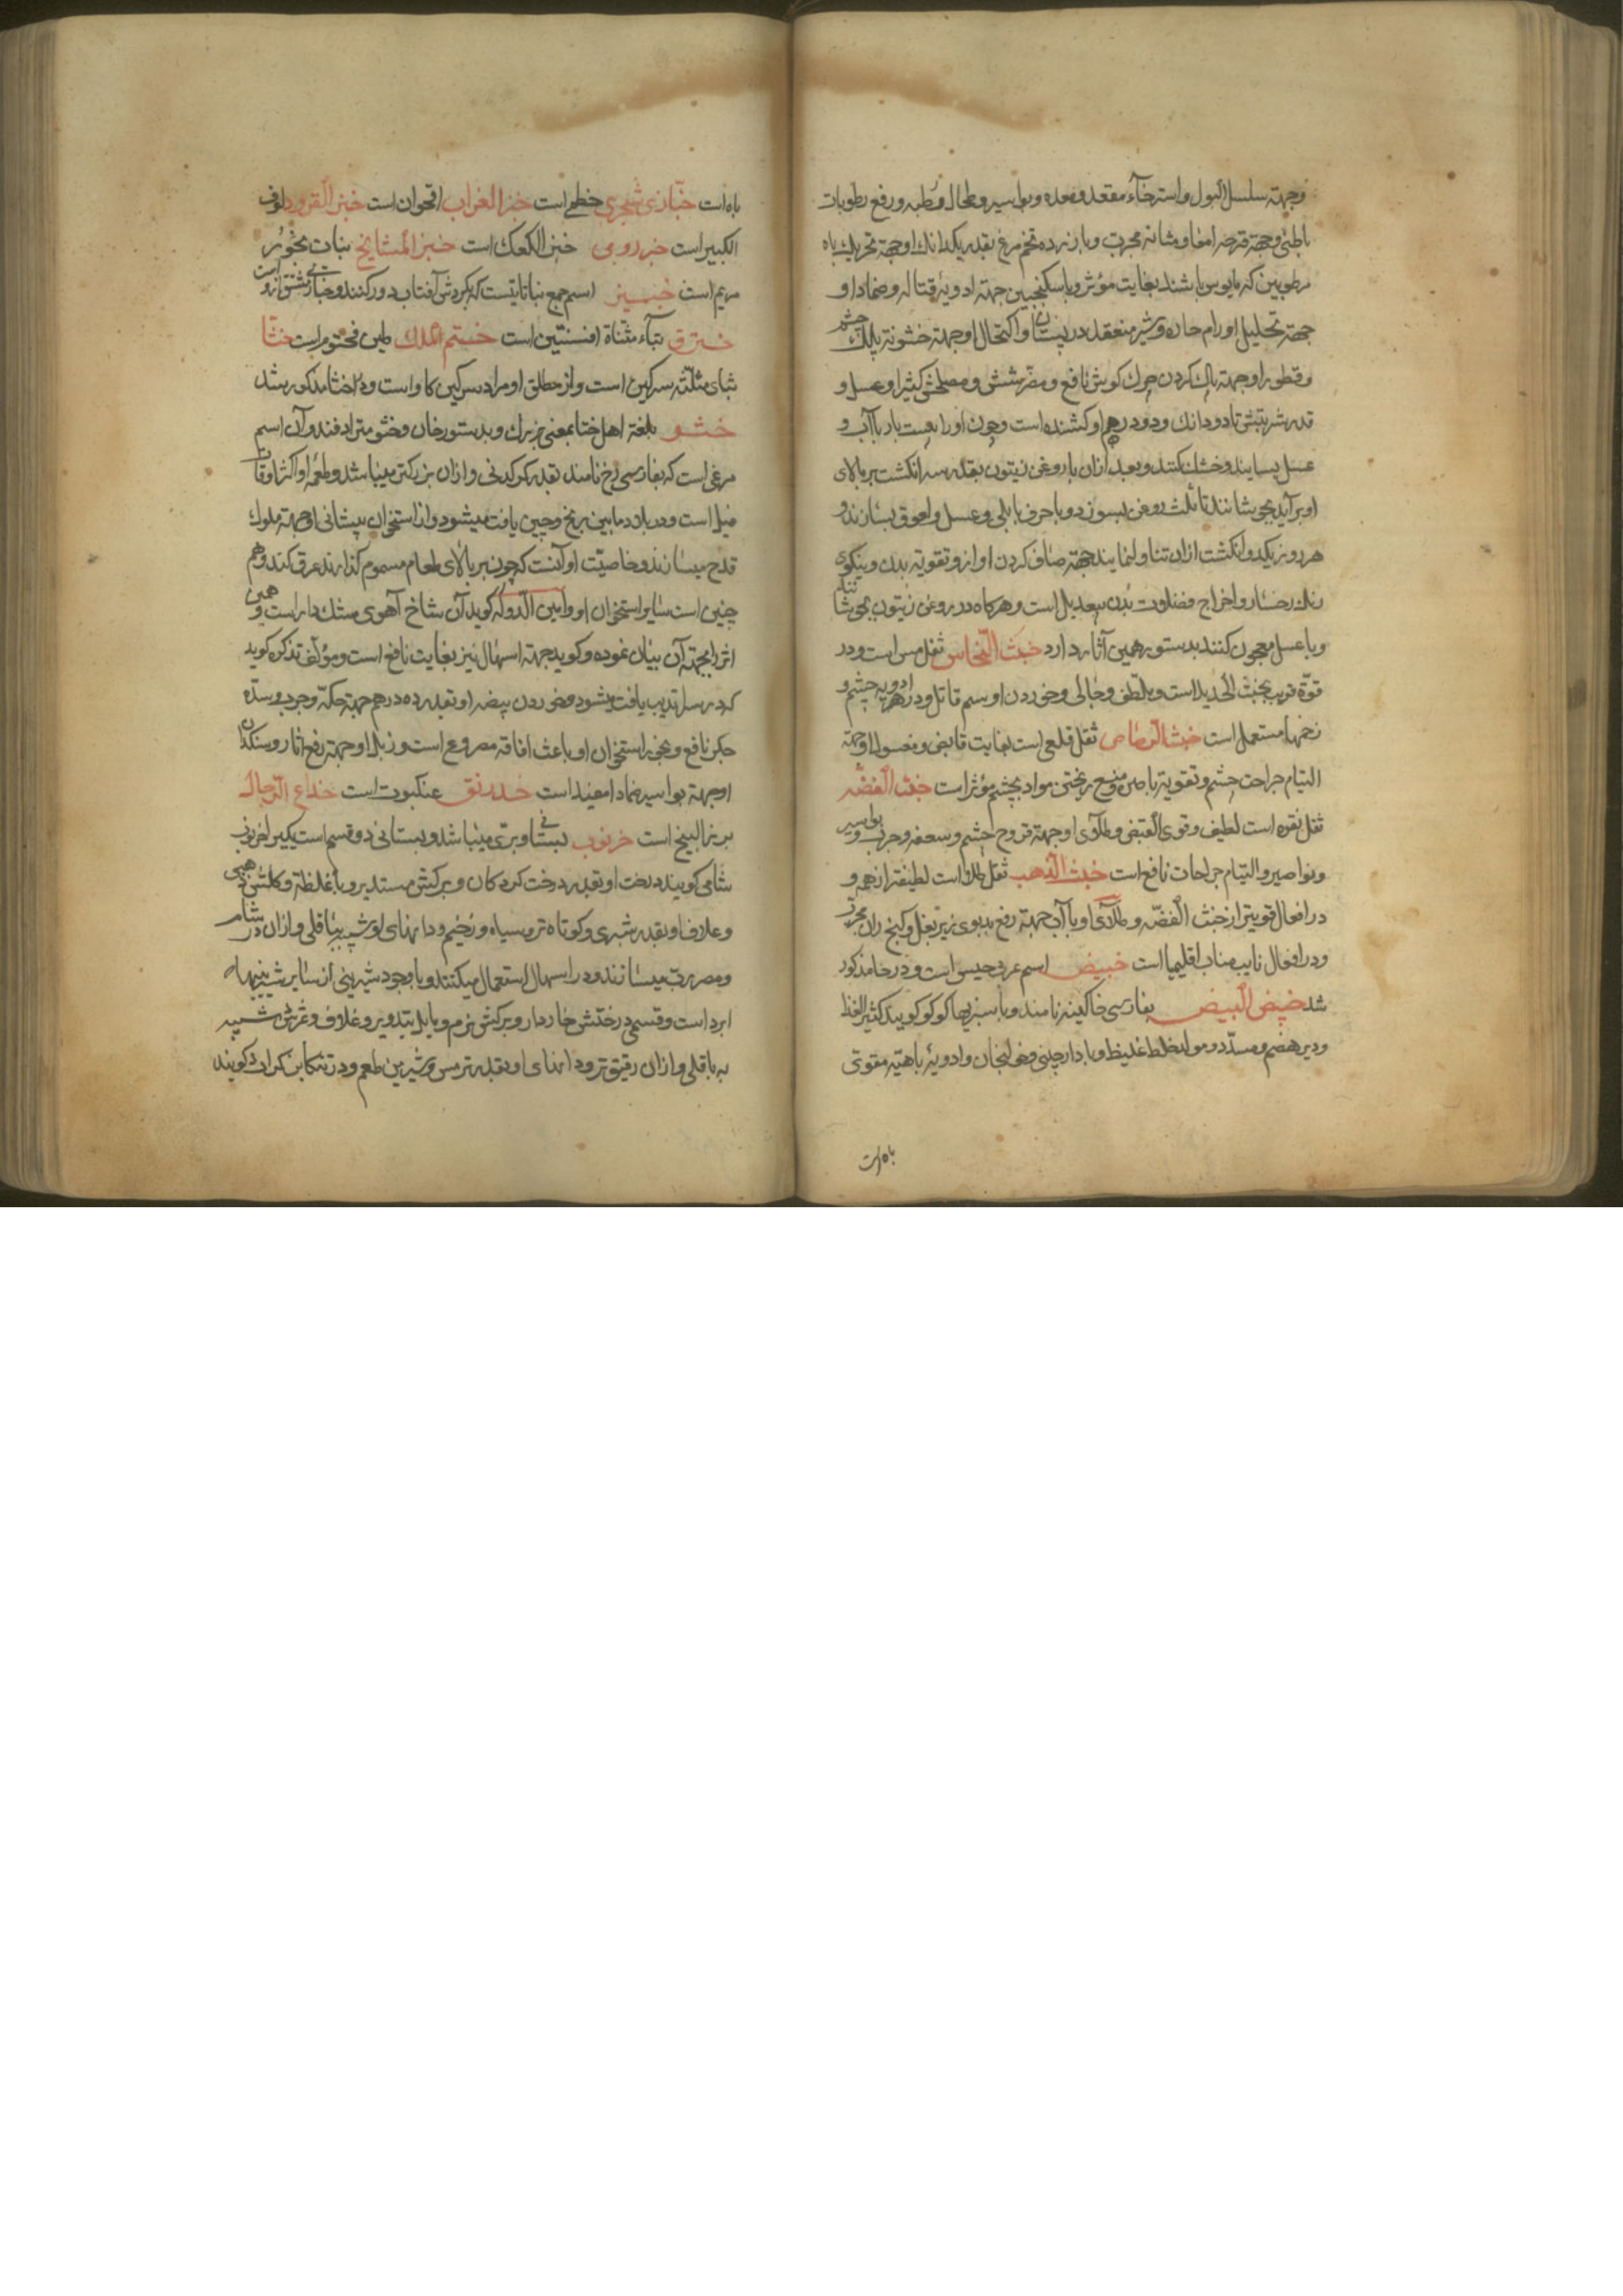 وجهته سلسل البول و استرخآء مقعد و معده و بواسیر و طحال و رفع رطوبات
باطنی وجهة قرحه امعا و مثانه مجرب و با زرده تخم مرغ بقدر یکدانك او جهة تحریك باه
مرطوبین که مایوس باشند بغایت مؤثر و با سکنجبین جهته ادویهٔ قتاله و ضماد او
جهة تحلیل اورام حاره و شیر منعقد در پستان و اکتحال او جهته خشونة پلك چشم
و قطور او جهته پاك کردن چرك کوش نافع و مضر شش و مصلحش کثیرا و عسل و
قدر شربتش تا دو دانك و دو درهم او کشنده است و چون او را بیست بار با آب و
عسل بسایند و خشك کنند و بعد از ان با روغن زیتون بقدر سه انکشت بر بالای
او بر آید بجوشانند تا بثلث روغن بسوزد و با حرف بابلی و عسل و لعوق بسازند و
هر روز یکدو انکشت ازان تناول نمایند جهته صاف کردن اواز و تقویة بدن و نیکوی
رنك رخسار و اخراج فضلات بدن بیعدیل است و هرکاه در روغن زیتون بجوشانند
و با عسل معجون کنند بدستور همین آثار دارد خبث النحاس ثفل مس است و در
قوّة قریب بخبث الحدید است و ملطف و جالی و خوردن او سم قاتل و در ادویه چشم و
زخمها مستعمل است خبث الرصاص ثفل قلعی است بغایت قابض و مغسول او جهته
التیام جراحت چشم و تقویة باصره و منع ریختن مواد بچشم مؤثر است خبث الفضّه
ثفل نقره است لطیف و قوی القبض و طلآی او جهته قروح چشم و سعفه و جرب و بواسیر
و نواصیر و التیام جراحات نافع است خبث الذهب ثفل طلا است لطیفتر از همه و
در افعال قویتر از خبث الفضّه و طلآی او با آب جهته رفع بدبوی زیر بغل و کنج ران مجرّب
و در افعال نایب مناب اقلیمیا است خبیص اسم عربی حیس است و در حا مذکور
شد خبیص البیض بفارسی خاکینه نامند و با سبزیها کوکو کویند کثیر الغذا
و دیر هضم و مسدّد و مولد خلط غلیظ و با دارچینی و خولنجان و ادویهٔ باهیّه مقوی
باه است
باه است خبّازی شجری خطمی است خبز الغراب اقحوان است خبز القرود لوف
الکبیر است خبز رومی خبز الکعك است خبز المشایخ نبات بخور
مریم است خبیز اسم جمع نباتاتیست که بکردش آفتاب دور کنند و خبازی مشتق ازو است
خترق بتآء مثناة افسنتین است ختم الملك طین مختوم است خثا
بثای مثلّثه سرکین است و از مطلق او مراد سرکین کاو است و در اخثا مذکور شد
ختو بلغة اهل ختا بمعنی بزرك و بدستور خان و ختو مترادفند و آن اسم
مرغی است که بفارسی رخ نامند بقدر کرکدنی و ازان بزرکتر میباشد و طعمهٔ او اکثر اوقات
فیل است و در بلاد مابین برنج و چین یافت میشود و از استخوان پیشانی او جهته ملوك
قدح میسازند و خاصیّت او آنست که چون بر بالای طعام مسموم کذارند عرق کند و هم
چنین است سایر استخوان او و امین الدوله کوید آن شاخ آهوی مشك دار است و همین
اثر را بجهته آن بیان نموده و کوید جهته اسهال نیز بغایت نافع است و مؤلف تذکره کوید
که در سراندیب یافت میشود و خوردن بیضه او بقدر ده درهم جهته حکّه و جرب و سدّه
جکر نافع و بخور استخوان او باعث افاقه مصروع است و زبل او جهته رفع اثار و سنکدان
او جهته بواسیر ضمادا مفید است خدرنق عنکبوت است خداع الرجال
بزر البنج است خرنوب بستانی و بری میباشد و بستانی دو قسم است یکی را خرنوب
شامی کویند درخت او بقدر درخت کردکان و برکش مستدیر و با غلظة و کلش ذهبی
و غلاف او بقدر شبری و کوتاه تر و سیاه و زخیم و دانهای او شبیه بباقلی و ازان در شام
و مصر ربّ میسازند و در اسهال استعمال میکنند و با وجود شیرینی از سایر شیرینیها
ابرد است و قسمی درختش خاردار و برکش نرم و مایل بتدویر و غلاف و ثمرش شبیه
به باقلی و ازان رقیق تر و دانهای او بقدر ترمس و شیرین طعم و در تنکابن کرات کویند